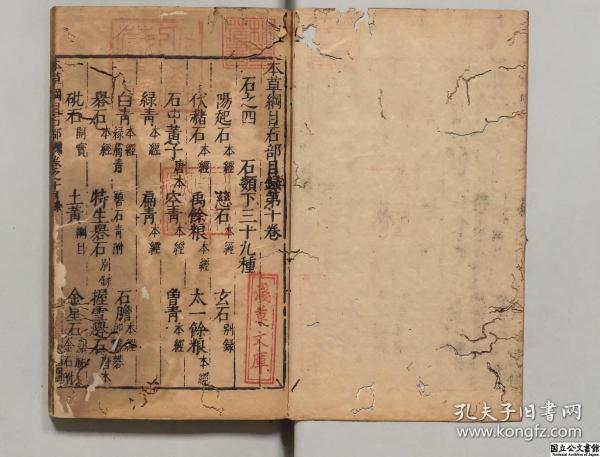 本草綱目石部目錄第十卷
石之四 石類下三十九種
陽起石本經 慈石本經 玄石別録
代赭石本經 禹餘粮本經 太一餘粮本經
石中黃子唐本 空青本經 曾青本經
綠青本經 扁青本經 石膽本經
白青本經
礜石本經 特生礜石別録 握雪礜石唐本
砒石 土黃綱目 金星石
淺草文庫
孔夫子旧书网
www.kongfz.com
国立公文書館
National Archives of Japan